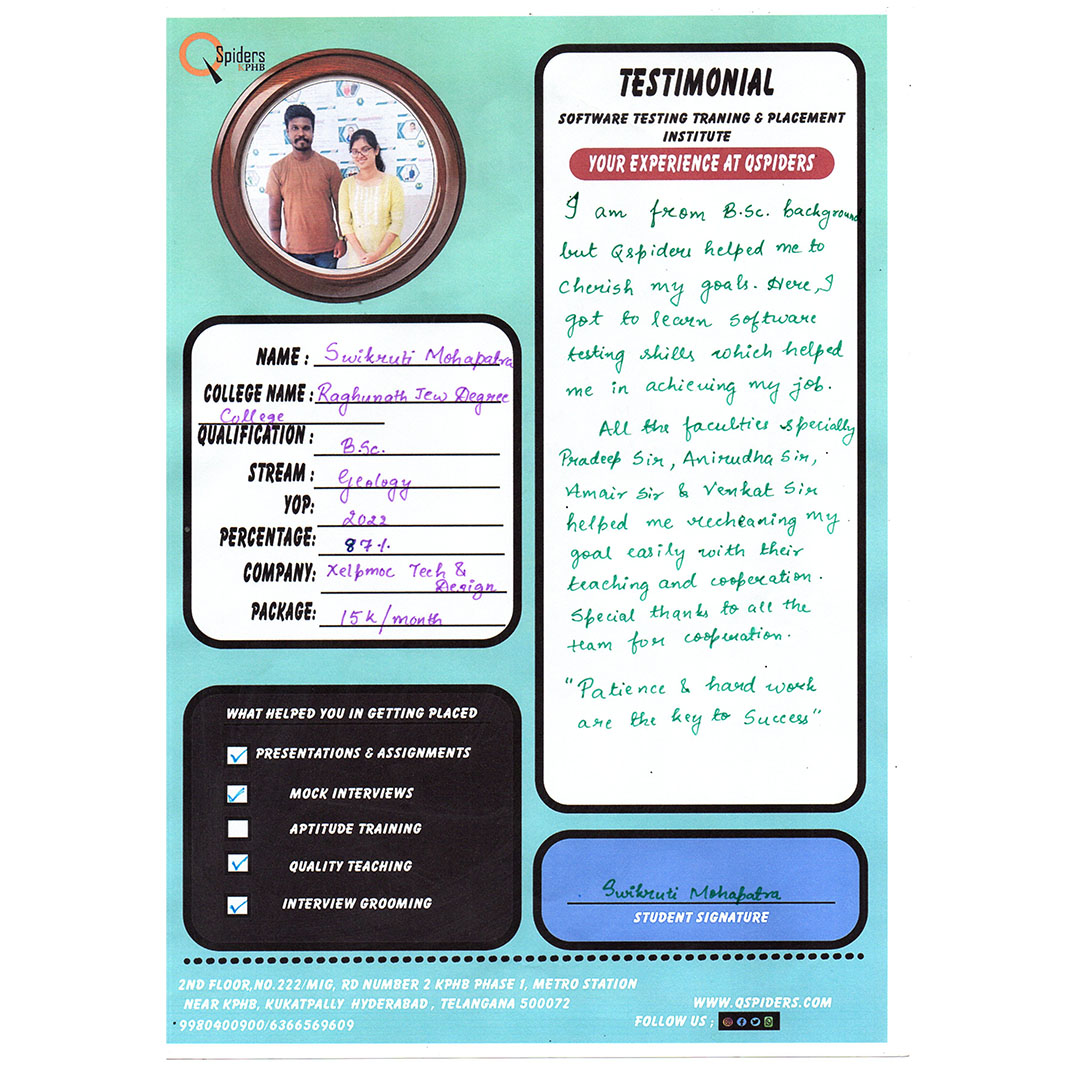 QSpiders
KPHB
TESTIMONIAL
SOFTWARE TESTING TRANING & PLACEMENT
INSTITUTE
YOUR EXPERIENCE AT QSPIDERS
I am from B.Sc. background
but Qspiders helped me to
cherish my goals. Here, I
got to learn software
testing skills which helped
me in achieving my job.
All the faculties specially
Pradeep Sir, Anirudha Sir,
Amair Sir & Venkat Sir
helped me recheaning my
goal easily with their
teaching and cooperation.
Special thanks to all the
team for cooperation.
"Patience & hard work
are the key to Success"
NAME : Swikruti Mohapatra
COLLEGE NAME : Raghunath Jew Degree
College
QUALIFICATION : B.Sc.
STREAM : Geology
YOP: 2022
PERCENTAGE: 87%
COMPANY: Xelpmoc Tech &
Design
PACKAGE: 15k/month
WHAT HELPED YOU IN GETTING PLACED
PRESENTATIONS & ASSIGNMENTS
MOCK INTERVIEWS
APTITUDE TRAINING
QUALITY TEACHING
INTERVIEW GROOMING
Swikruti Mohapatra
STUDENT SIGNATURE
2ND FLOOR,NO.222/MIG, RD NUMBER 2 KPHB PHASE 1, METRO STATION
NEAR KPHB, KUKATPALLY HYDERABAD , TELANGANA 500072
9980400900/6366569609
WWW.QSPIDERS.COM
FOLLOW US ;